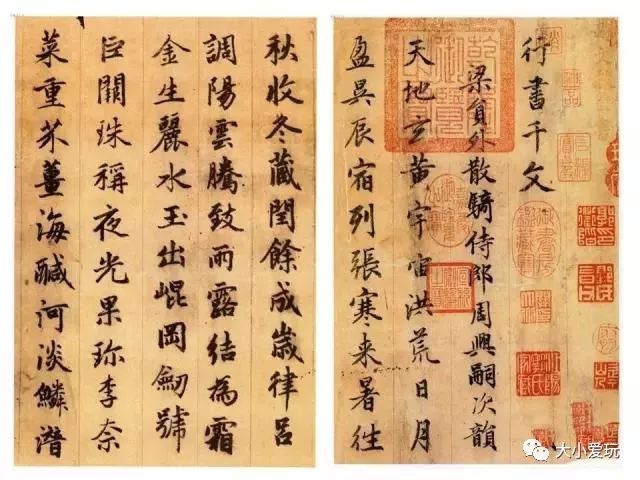 行書千文
梁負外散騎侍郎周興嗣次韻
天地玄黄宇宙洪荒日月
盈昃辰宿列張寒来暑往
秋收冬藏閏餘成歲律吕
調陽雲騰致雨露結為霜
金生麗水玉出崐岡劒號
巨闕珠稱夜光果珍李柰
菜重芥薑海鹹河淡鱗潛
大小爱玩